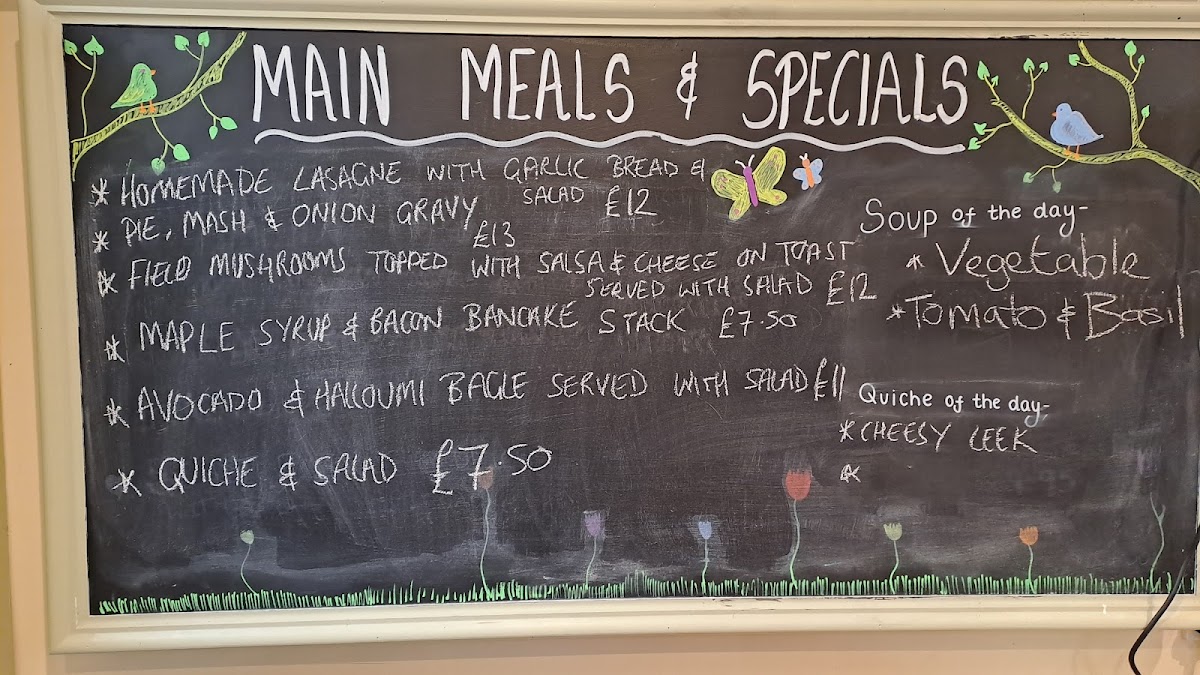 MAIN MEALS & SPECIALS
* HOMEMADE LASAGNE WITH GARLIC BREAD &
SALAD £12
* PIE, MASH & ONION GRAVY
£13
* FIELD MUSHROOMS TOPPED WITH SALSA & CHEESE ON TOAST
SERVED WITH SALAD £12
* MAPLE SYRUP & BACON BANCAKE STACK £7.50
* AVOCADO & HALLOUMI BAGLE SERVED WITH SALAD £11
* QUICHE & SALAD £7.50
Soup of the day-
* Vegetable
* Tomato & Basil
Quiche of the day-
* CHEESY LEEK
*